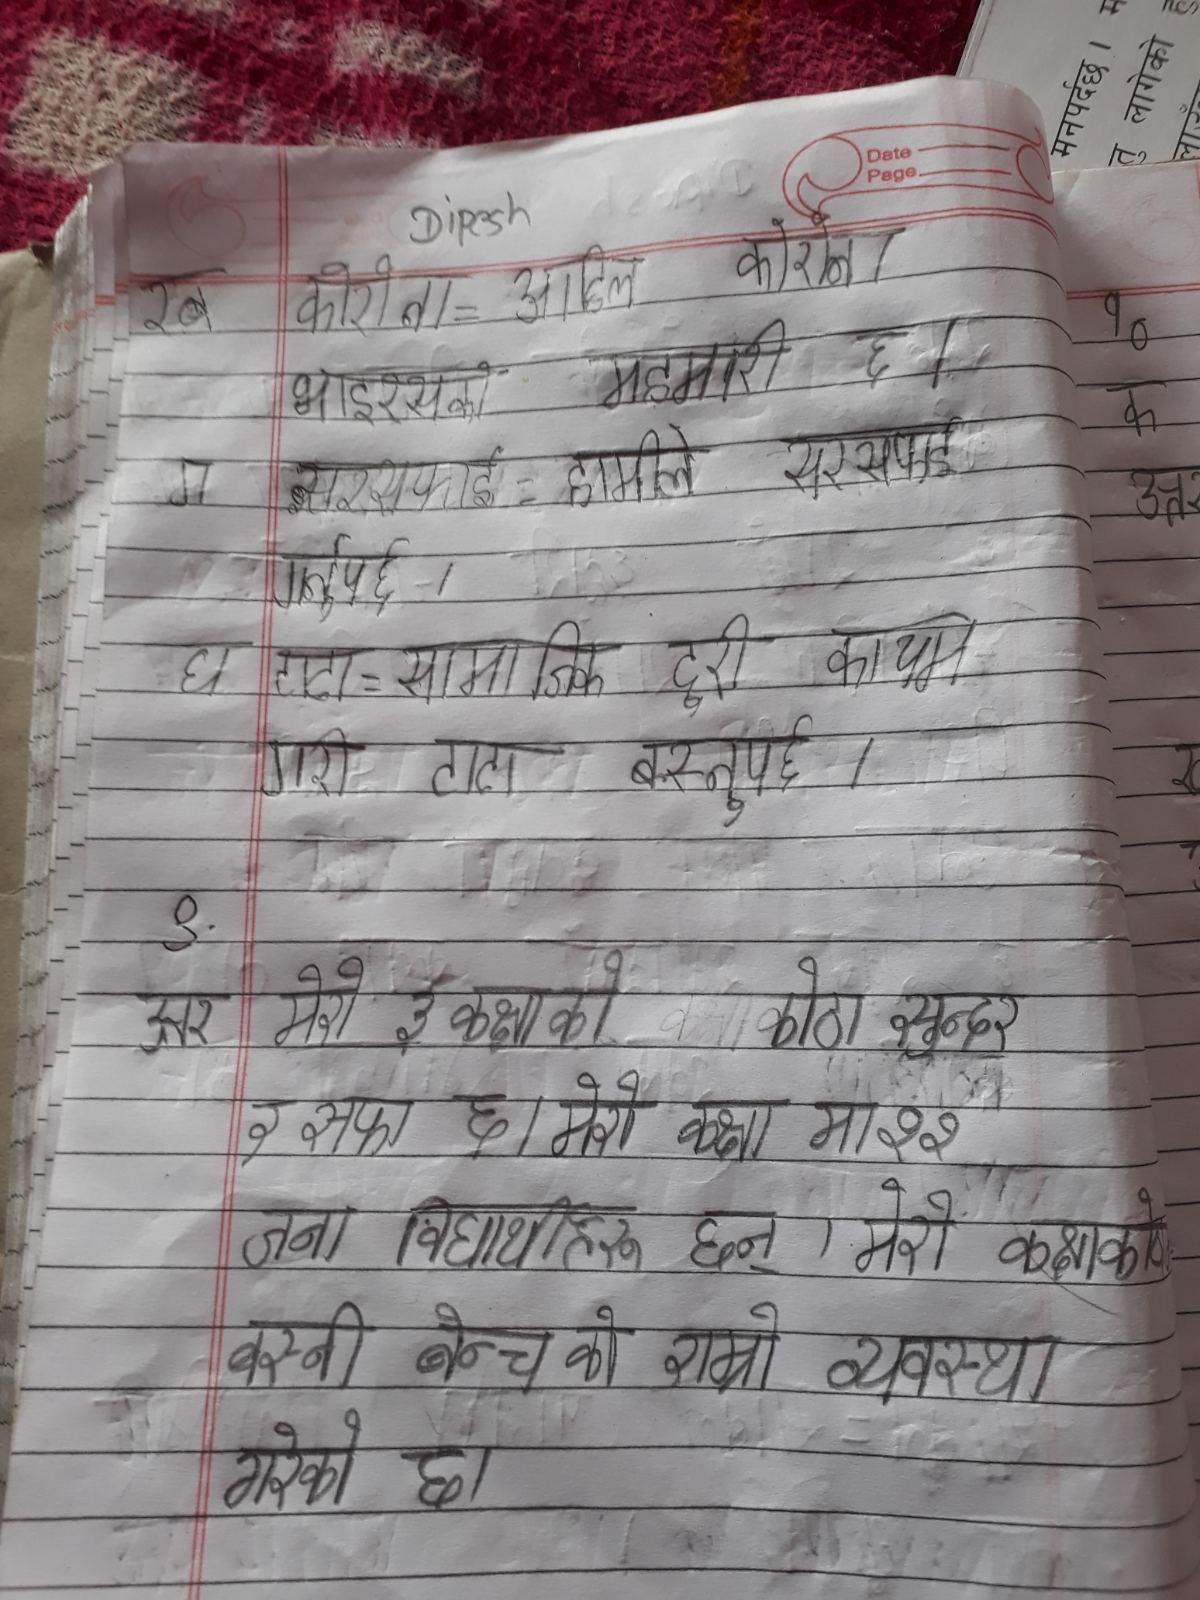 Date
Page
Dipesh
ख कोरोना = अहिले कोरोना
भाइरसको महमारी छ ।
ग सरसफाई = हामीले सरसफाई
गर्नुपर्छ ।
घ टाढा = सामाजिक दूरी कायम
गरी टाढा बस्नुपर्छ ।
९.
उत्तर मेरो ३ कक्षाको कोठा सुन्दर
र सफा छ। मेरो कक्षा मा २२
जना विद्यार्थीहरू छन् । मेरो कक्षाको
बस्नी बेन्चको राम्रो व्यवस्था
गरेको छ।
मनपर्दछ। म
तु लागेको
१०
क
उत्तर